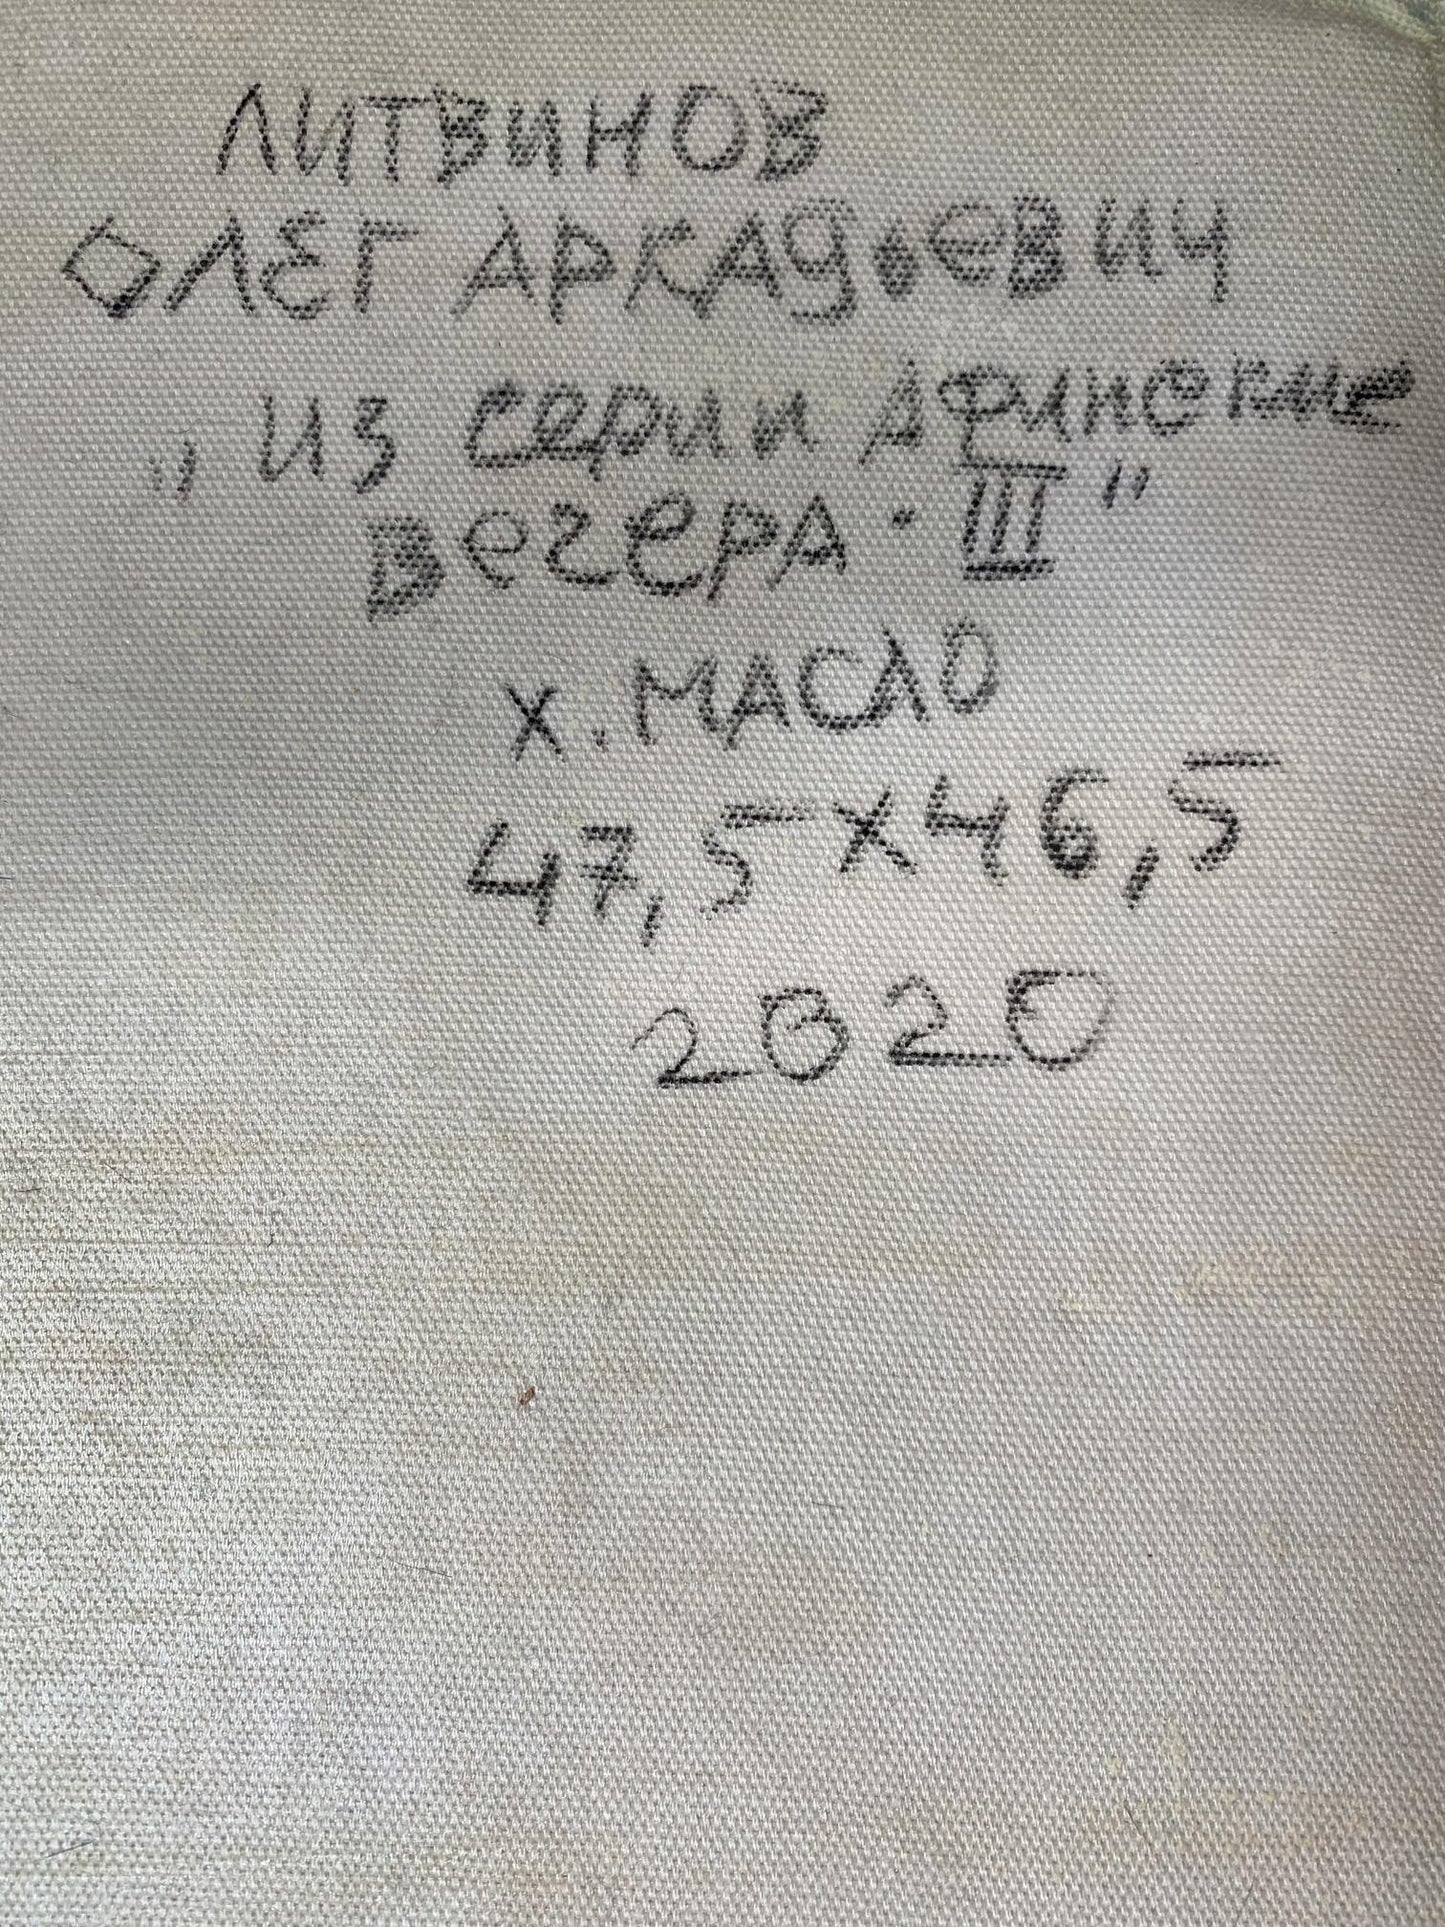 ЛИТВИНОВ
ОЛЕГ АРКАДЬЕВИЧ
„ИЗ серии Афинские
вечера - III"
х. МАСЛО
47,5 х 46,5
2020